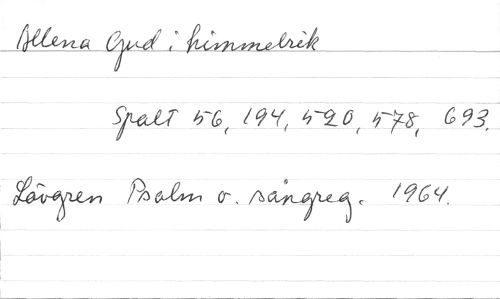 Allena Gud i himmelrik
Spalt 56, 194, 520, 578, 693.
Lövgren Psalm o. sångreg. 1964.